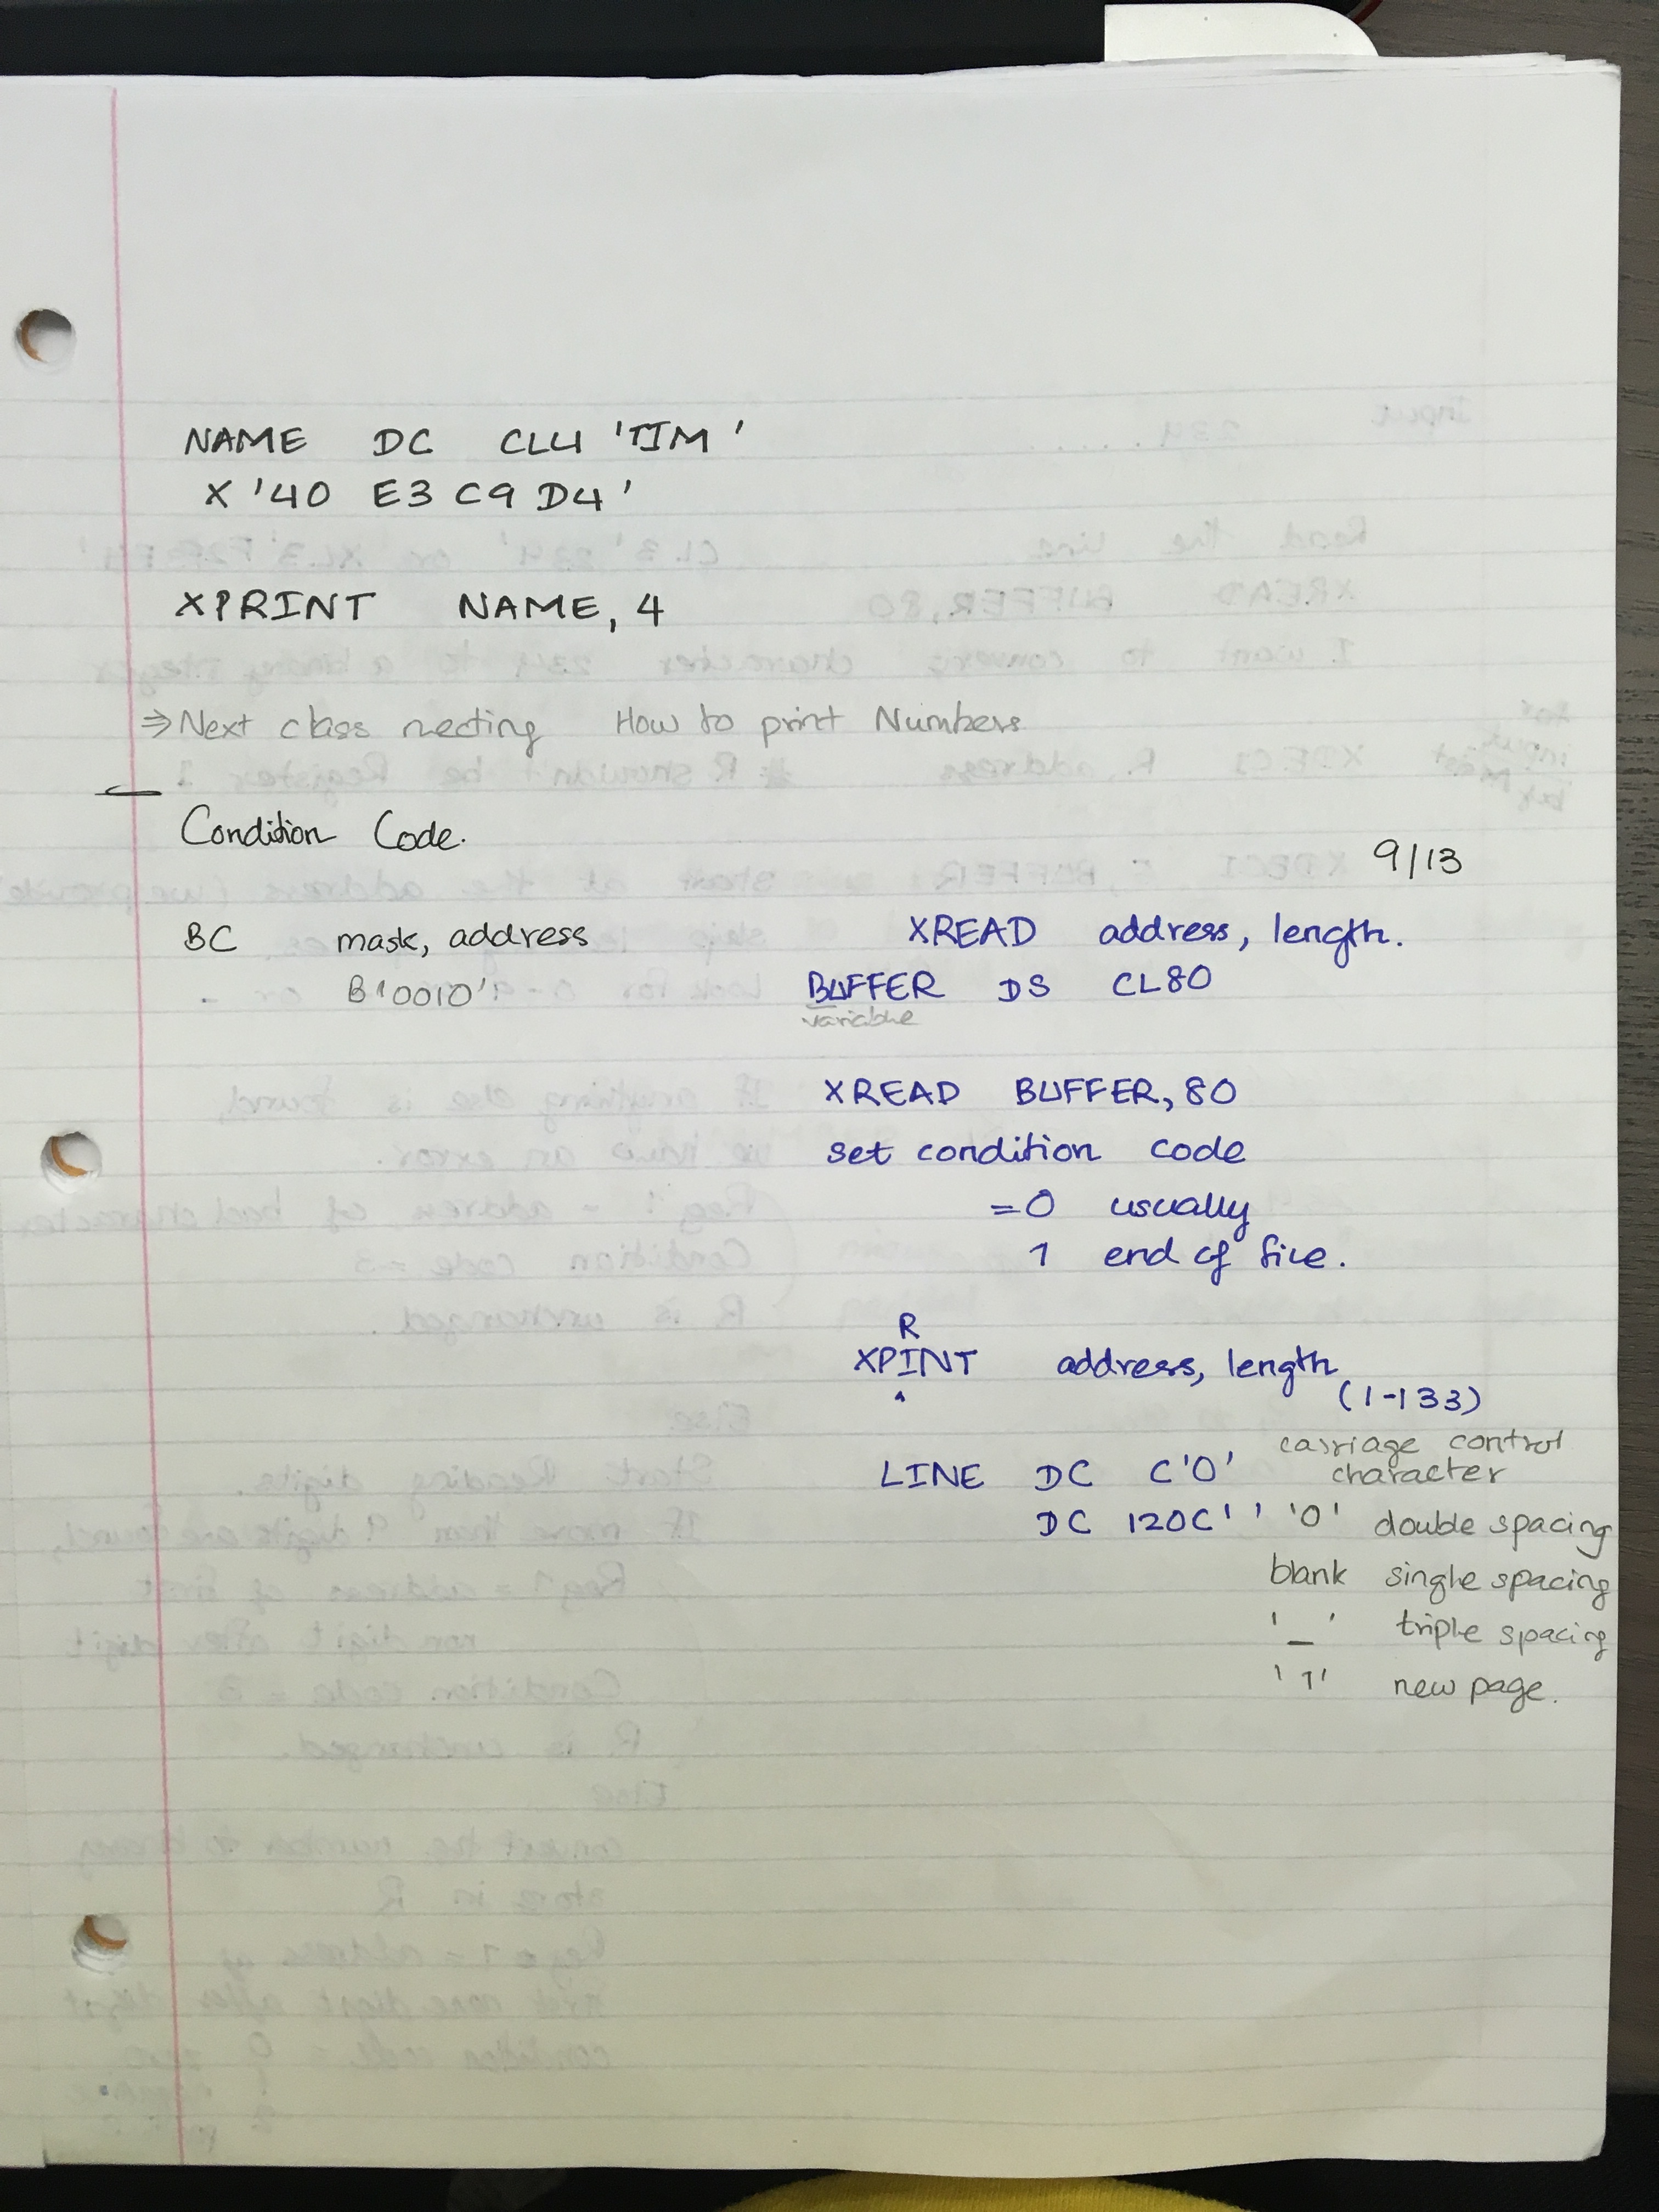 NAME DC CL4 'TIM '
X '40 E3 C9 D4'
XPRINT NAME, 4
⇒ Next class meeting How to print Numbers
Condition Code.
9/13
BC mask, address
B'0010'
XREAD address, length.
BUFFER DS CL80
variable
XREAD BUFFER, 80
set condition code
=0 usually
1 end of file.
R
XPINT address, length
(1-133)
carriage control
LINE DC C'0' character
DC 120C' ' '0' double spacing
blank single spacing
'_' triple spacing
'1' new page.